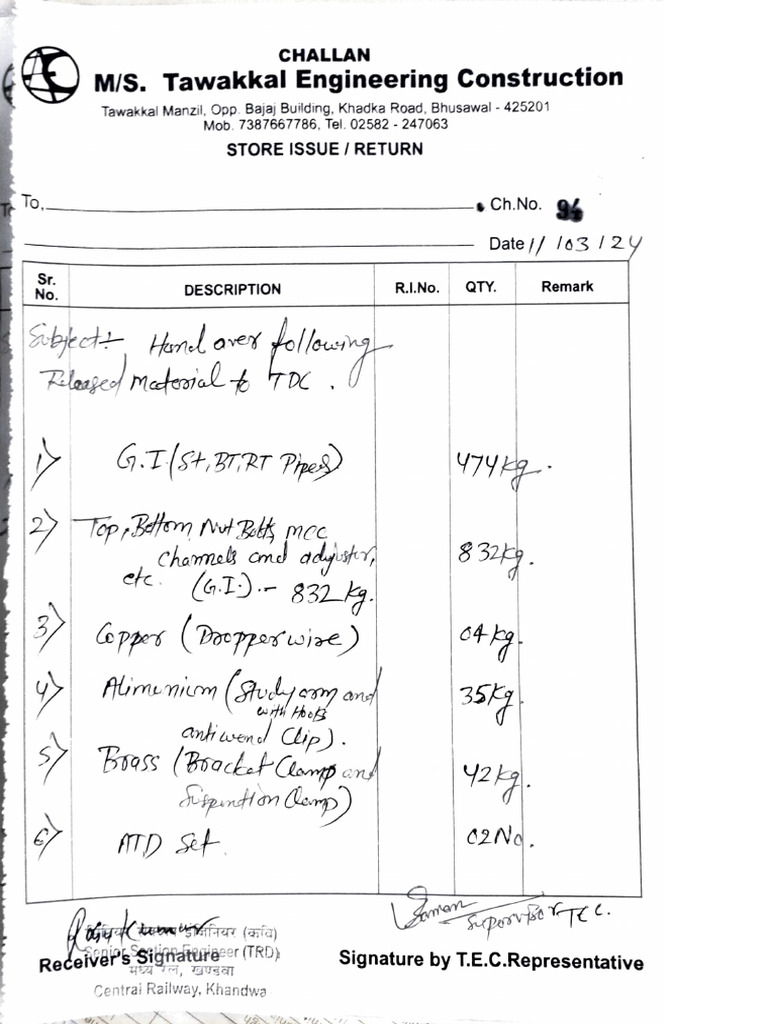 CHALLAN
M/S. Tawakkal Engineering Construction
Tawakkal Manzil, Opp. Bajaj Building, Khadka Road, Bhusawal - 425201
Mob. 7387667786, Tel. 02582 - 247063
STORE ISSUE / RETURN
To, Ch.No. 94
Date 11/03/24
Sr. No. DESCRIPTION R.I.No. QTY. Remark
Subject:- Hand over following
Released material to TDC.
1) G.I. (St, BT, RT Pipes) 474 kg.
2) Top, Bottom, Nut Bolts, MCC
channels and adjuster, 832 kg.
etc. (G.I.) - 832 kg.
3) Copper (Dropper wire) 04 kg.
4) Alimunium (Study arm and 35 kg.
with Hooks
antiwend Clip).
5) Brass (Bracket Clamp and 42 kg.
Suspention Clamp)
6) ATD Set. 02 No.
Supervisor TEC.
इंजीनियर (कवि)
Senior Section Engineer (TRD)
Receiver's Signature Signature by T.E.C.Representative
मध्य रेल, खण्डवा
Central Railway, Khandwa